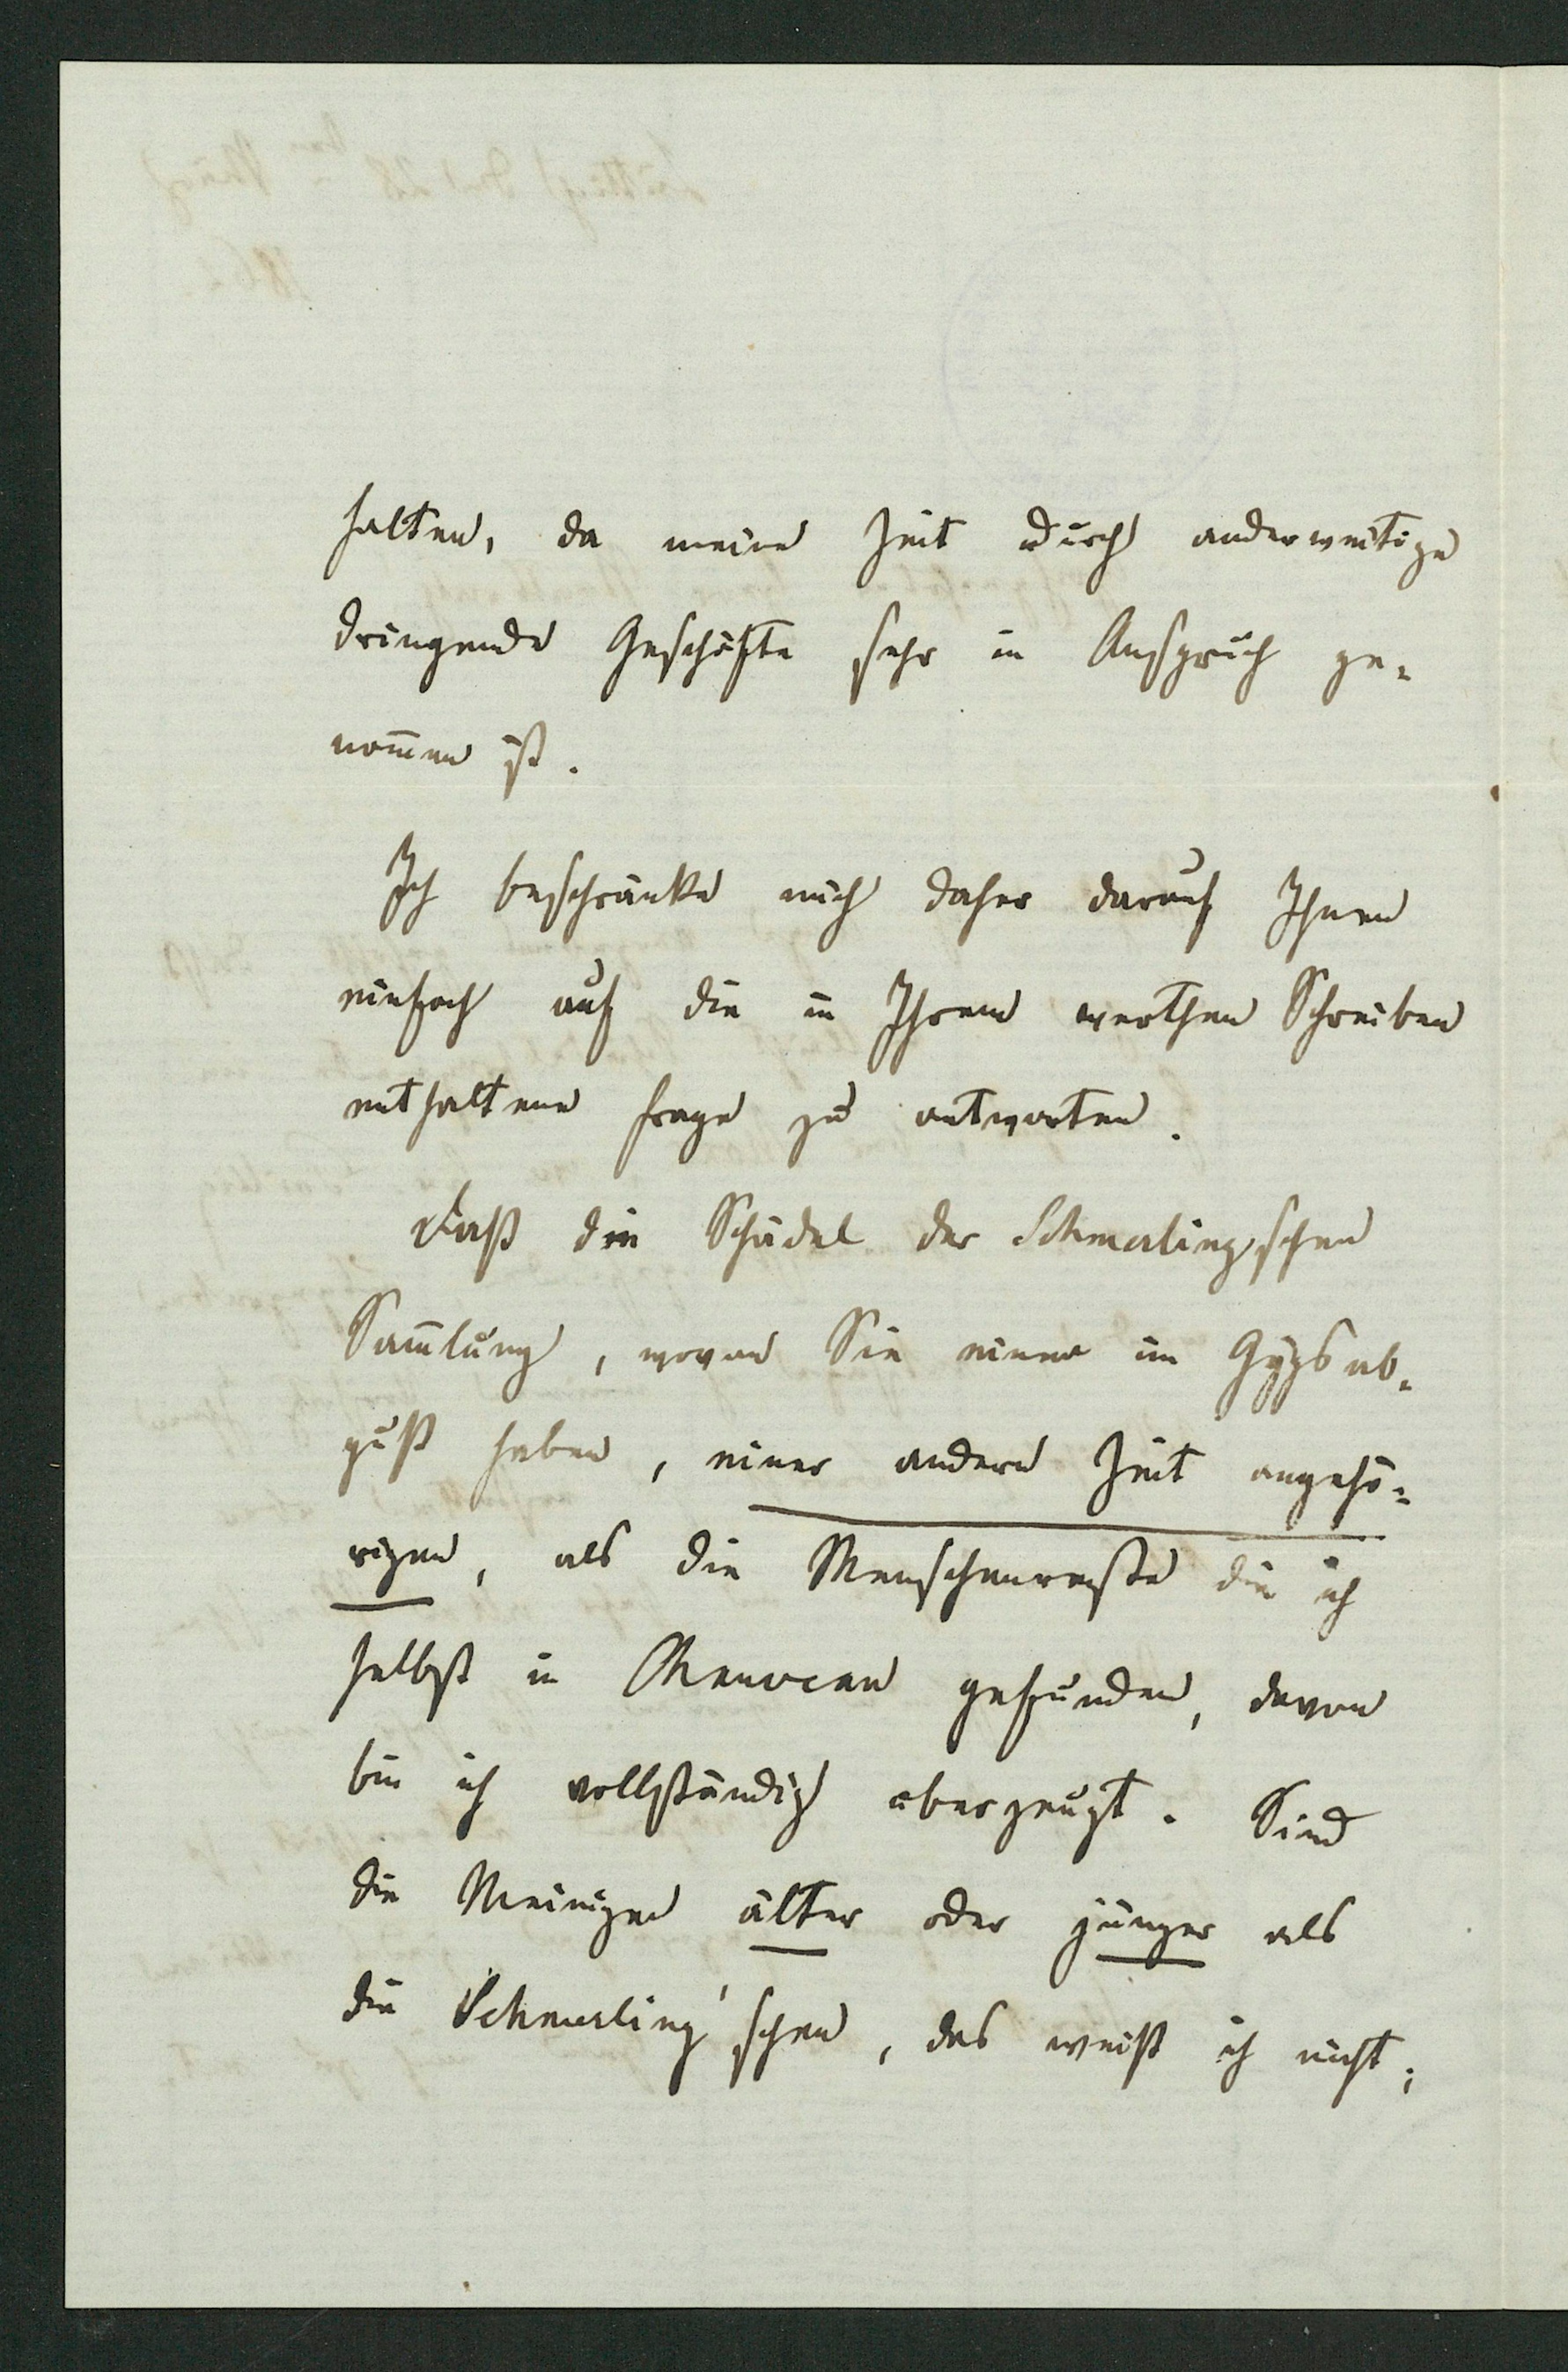 halten, da meine Zeit durch anderweitige
dringende Geschäfte sehr in Anspruch ge-
nom̄en ist.
Ich beschränke mich daher darauf Ihnen
einfach auf die in Ihrem werthen Schreiben
enthaltene Frage zu antworten.
Daß die Schädel der Schmerlingschen
Sam̄lung, wovon Sie einen im Gypsab-
guß haben, einer andern Zeit angehö-
rigen, als die Menschenreste die ich
selbst in gefunden, davon
bin ich vollständig überzeugt. Sind
die Meinigen älter oder jünger als
die Schmerling'schen, das weiß ich nicht;